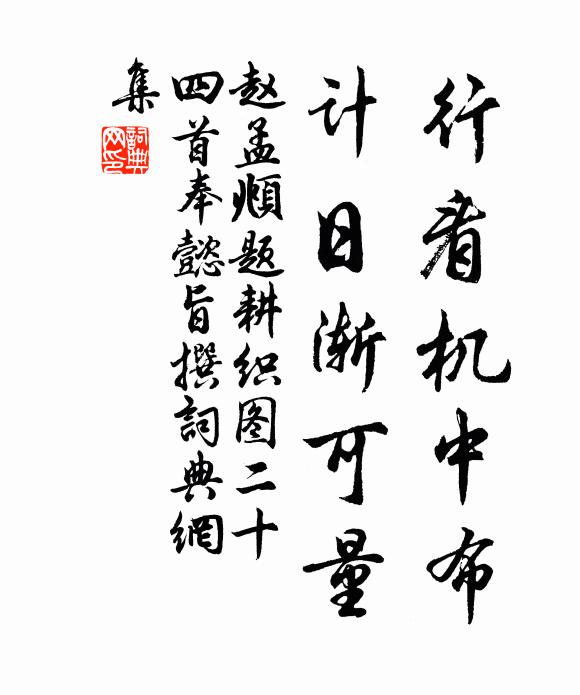 行看机中布
计日渐可量
赵孟頫题耕织图二十
四首奉懿旨撰詞典網
集
詞典网印